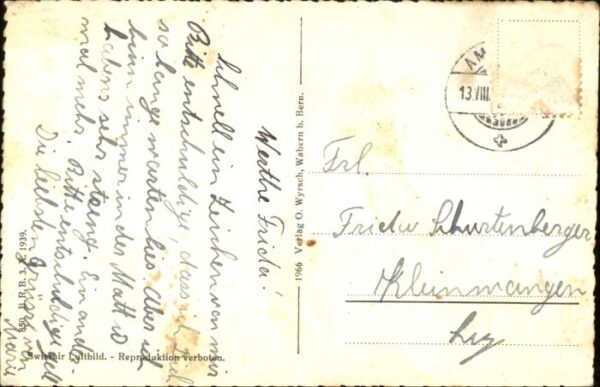 Werthe Frida!
Schnell ein Zeichen von mir
Bitte entschuldige, dass ich Dich
so lange warten lies. Aber ich
binn immer in der Matt wo
habens sehr streng. Ein ander-
mal mehr. Bitte entschuldige
Die liebsten Grüsse
Marie
Frl.
Frida Schurtenberger
Kleinwangen
Luz
AM
13.VIII.
1966 Verlag O. Wyrsch, Wabern b. Bern.
850 B.R.B. 3. X. 1939.
Swissair Luftbild. - Reproduktion verboten.